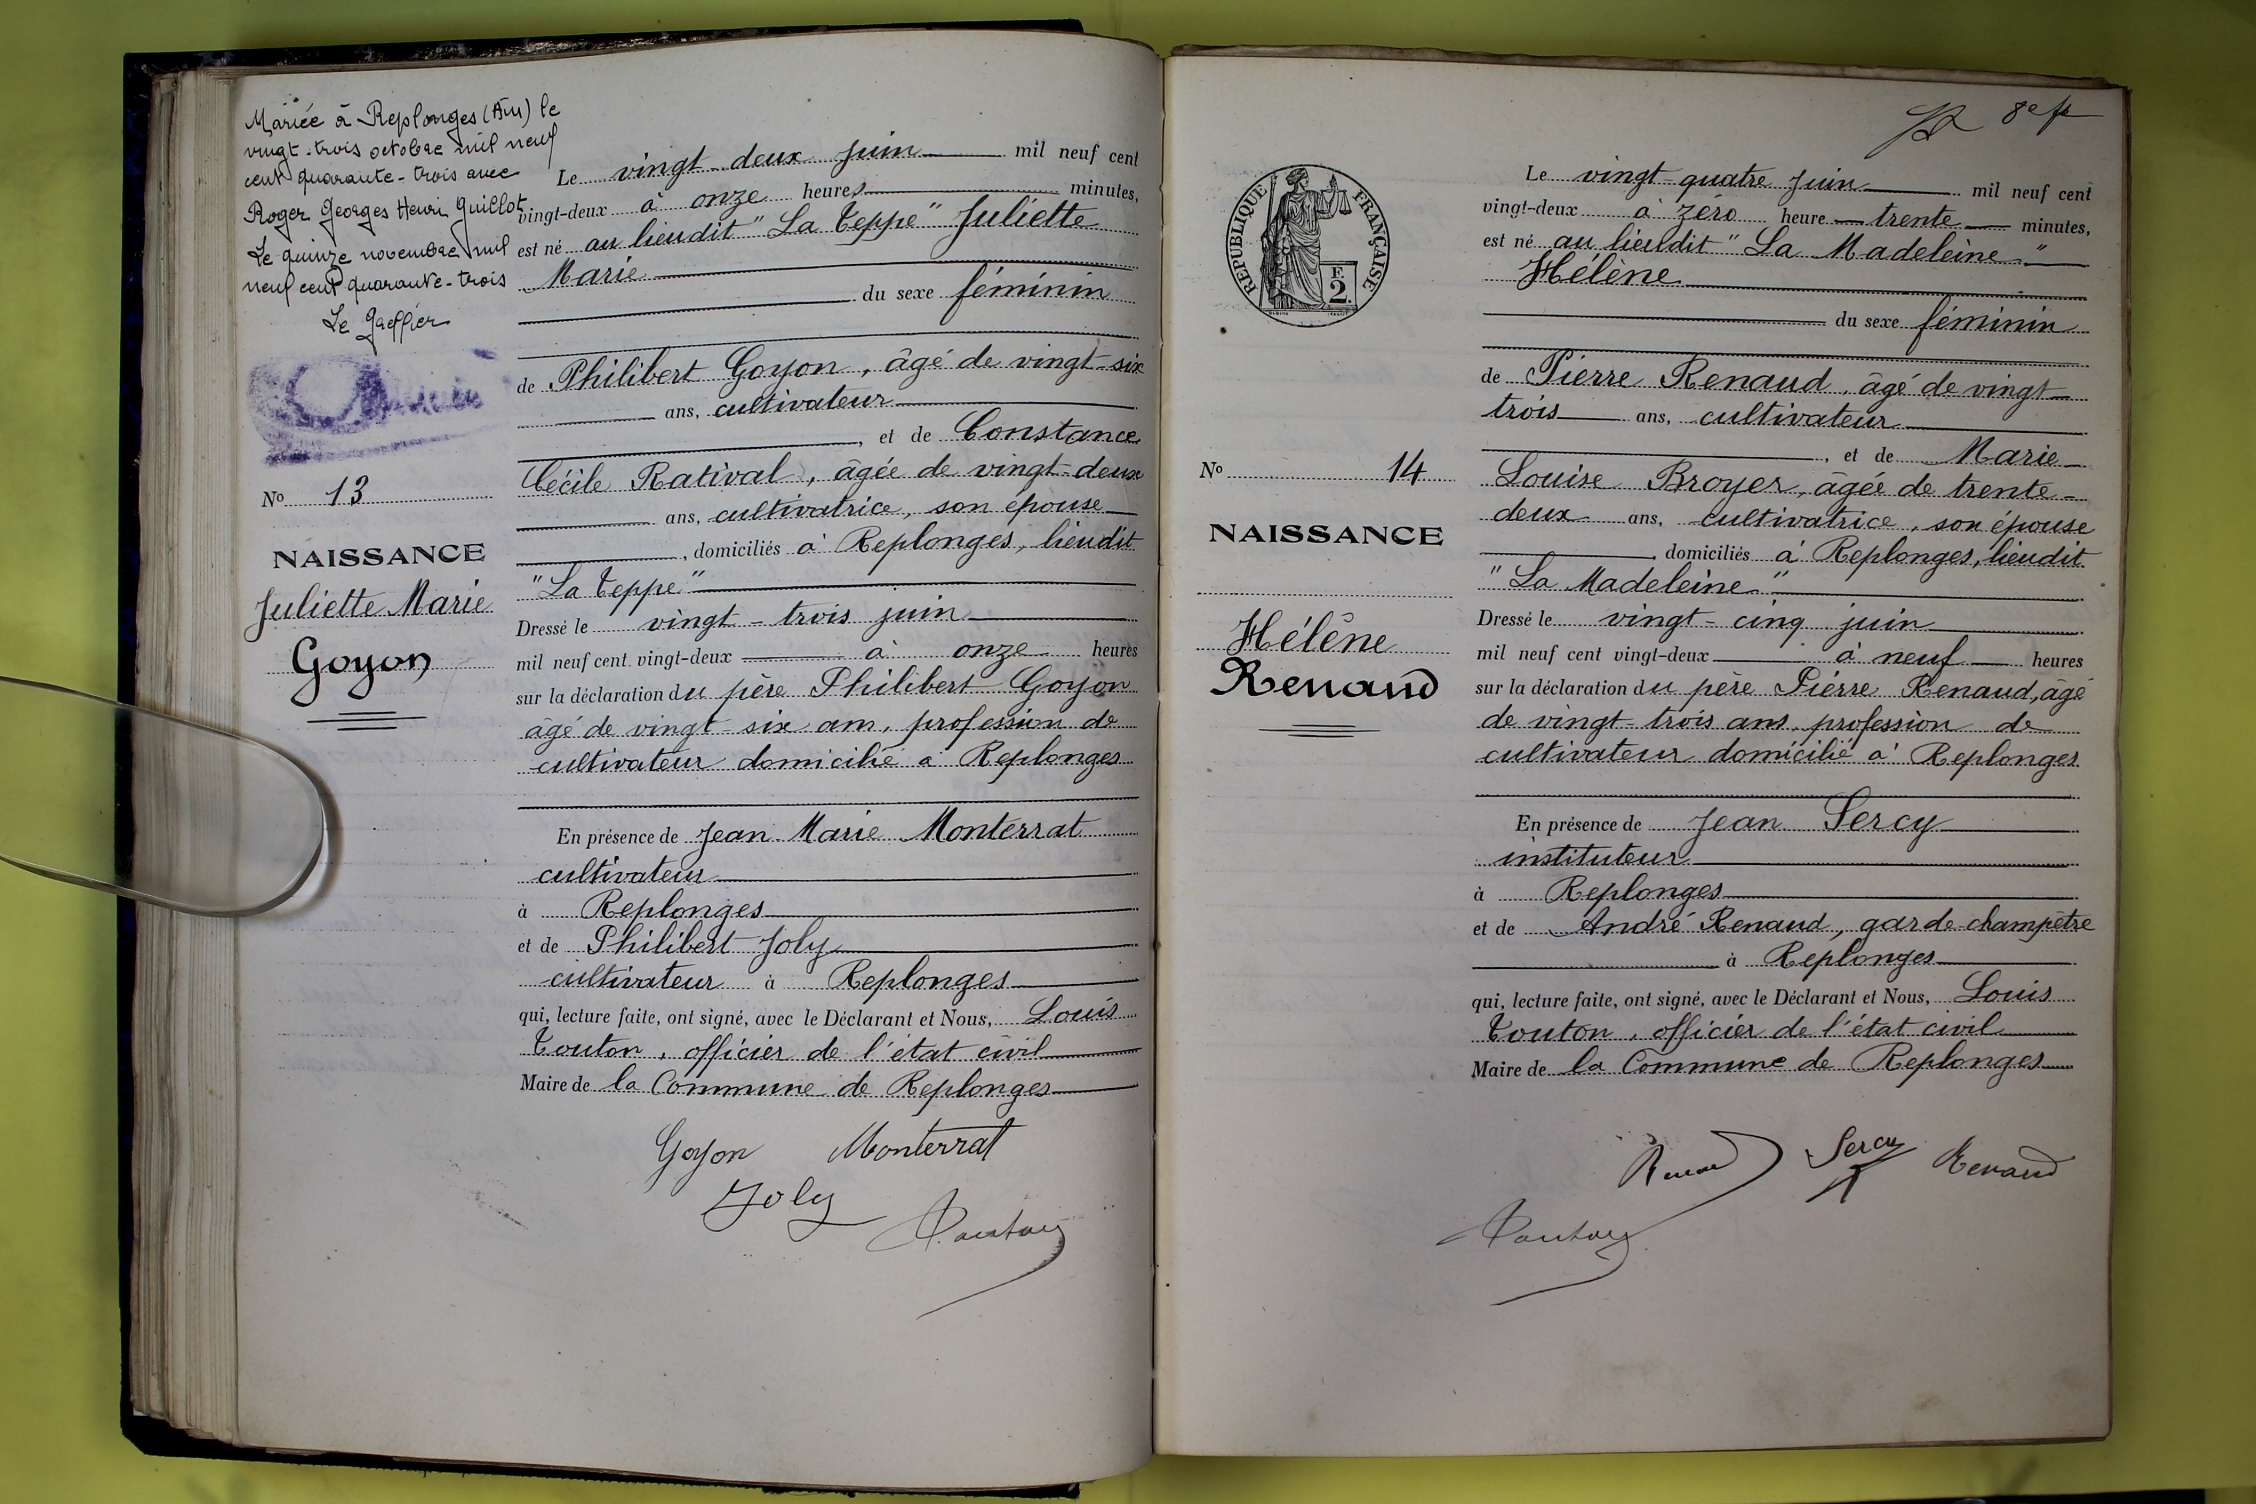 Mariée à Replonges (Ain) le
vingt-trois octobre mil neuf
cent quarante-trois avec
Roger Georges Henri Guillot
Le quinze novembre mil
neuf cent quarante-trois
Le Greffier
No 13
NAISSANCE
Juliette Marie
Goyon
Le vingt-deux juin mil neuf cent
vingt-deux à onze heures minutes,
est né au lieudit "La Teppe" Juliette
Marie
du sexe féminin
de Philibert Goyon, âgé de vingt-six
ans, cultivateur
, et de Constance
Cécile Ratival, âgée de vingt-deux
ans, cultivatrice, son épouse
, domiciliés à Replonges, lieudit
"La Teppe"
Dressé le vingt-trois juin
mil neuf cent vingt-deux à onze heures
sur la déclaration du père Philibert Goyon
âgé de vingt-six ans, profession de
cultivateur domicilié à Replonges
En présence de Jean Marie Monterrat
cultivateur
à Replonges
et de Philibert Joly
cultivateur à Replonges
qui, lecture faite, ont signé, avec le Déclarant et Nous, Louis
Touton, officier de l'état civil
Maire de la Commune de Replonges
Goyon Monterrat
Joly Touton
8e
RÉPUBLIQUE FRANÇAISE
F.
2.
No 14
NAISSANCE
Hélène
Renaud
Le vingt quatre juin mil neuf cent
vingt-deux à zéro heure trente minutes,
est né au lieudit "La Madeleine"
Hélène
du sexe féminin
de Pierre Renaud, âgé de vingt
trois ans, cultivateur
, et de Marie
Louise Broyer, âgée de trente-
deux ans, cultivatrice, son épouse
, domiciliés à Replonges, lieudit
"La Madeleine"
Dressé le vingt-cinq juin
mil neuf cent vingt-deux à neuf heures
sur la déclaration du père Pierre Renaud, âgé
de vingt-trois ans profession de
cultivateur domicilié à Replonges
En présence de Jean Sercy
instituteur
à Replonges
et de André Renaud, garde-champêtre
à Replonges
qui, lecture faite, ont signé, avec le Déclarant et Nous, Louis
Touton, officier de l'état civil
Maire de la Commune de Replonges
Renaud Sercy Renaud
Touton